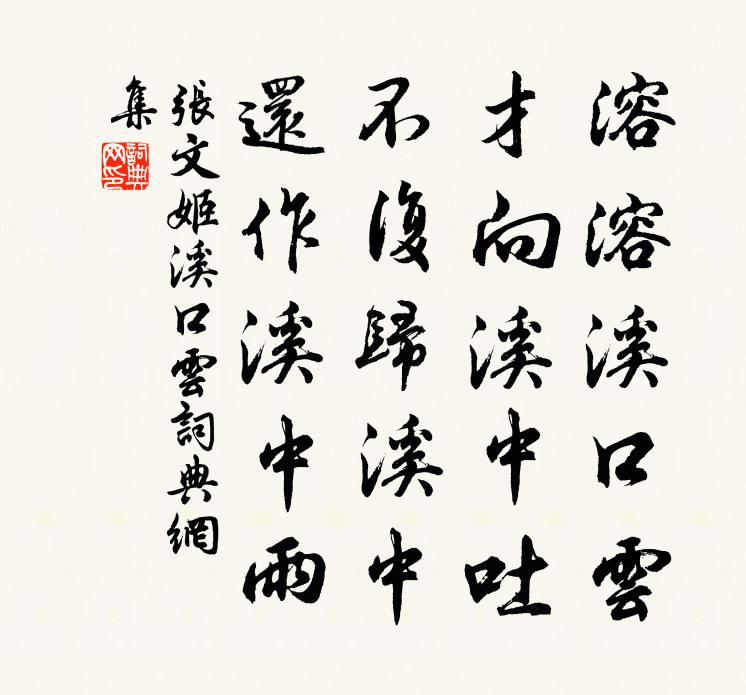 溶溶溪口雲
才向溪中吐
不復歸溪中
還作溪中雨
張文姬溪口雲詞典網
集
詞典
网印